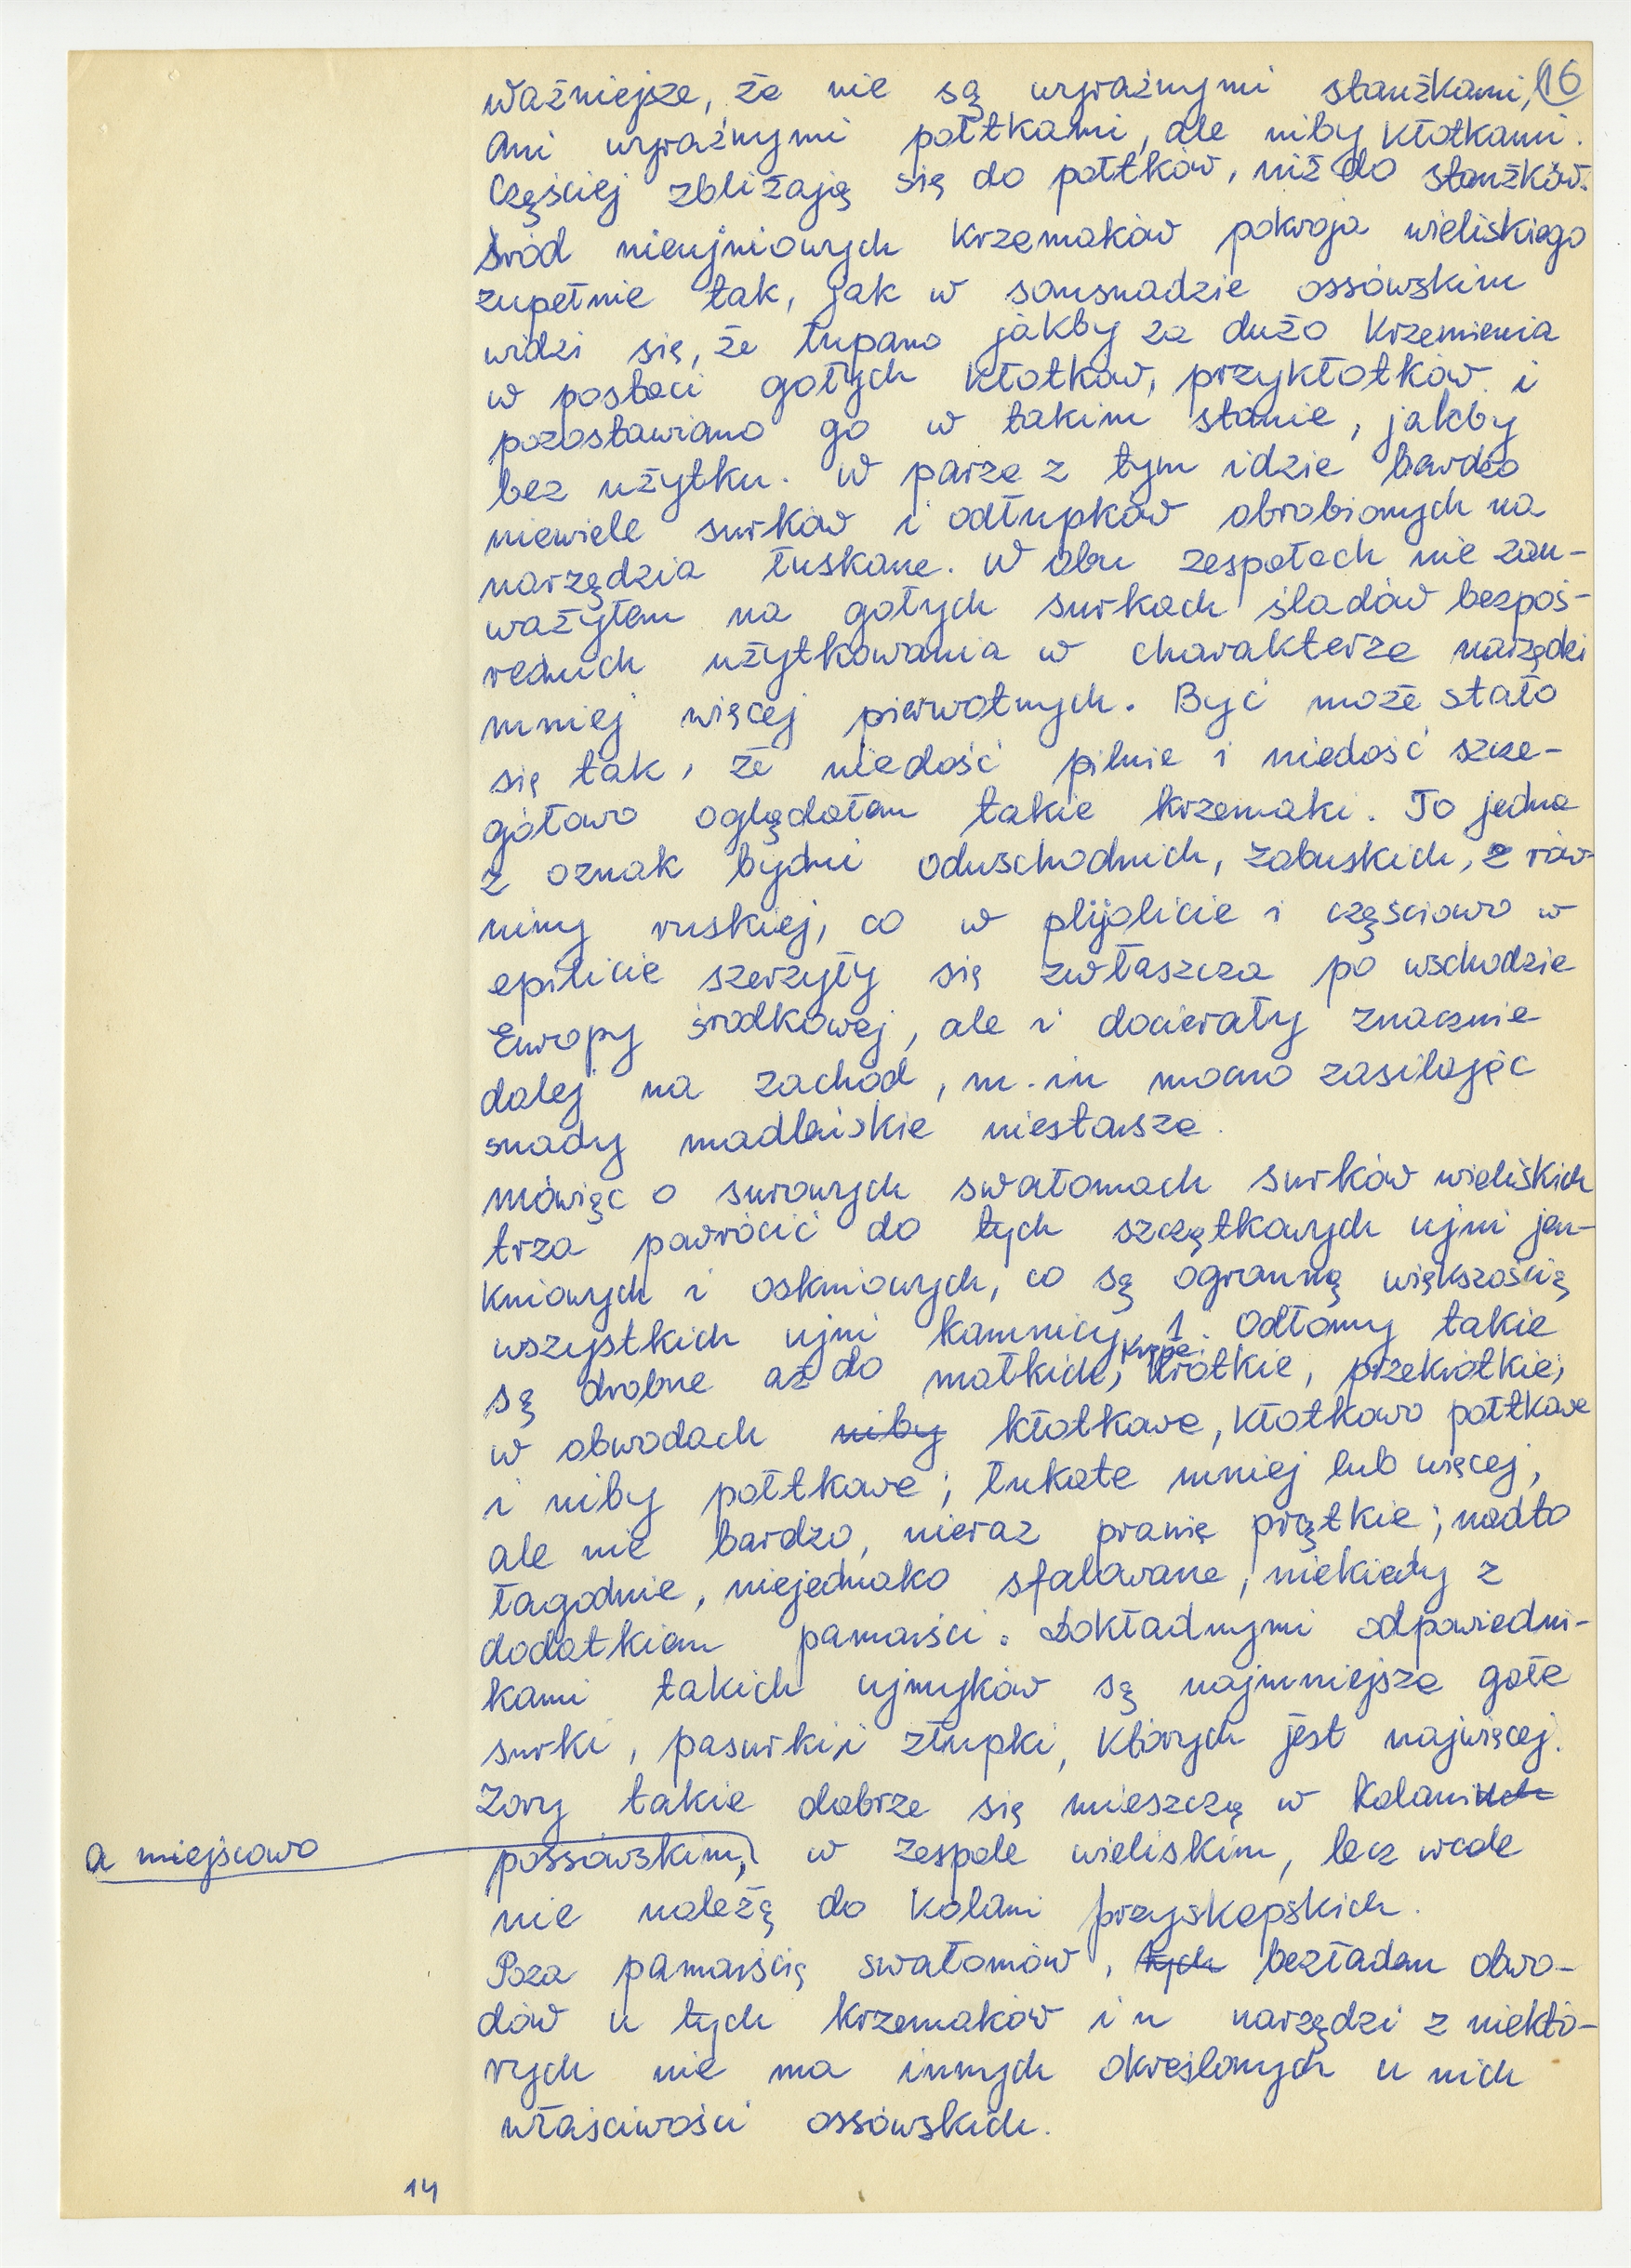 16
ważniejsze, że nie są wyraźnymi stanżkami,
ani wyraźnymi połtkami, ale niby kłotkami.
Częściej zbliżają się do połtków, niż do stanżków.
Śród nieujniowych krzemaków pokroja wieliskiego
zupełnie tak, jak w sansnadzie ossówskim
widzi się, że łupano jakby za dużo krzemienia
w postaci gołych kłotków, przykłotków i
pozostawiano go w takim stanie, jakby
bez użytku. W parze z tym idzie bardzo
niewiele surków i odłupków obrobionych na
narzędzia łuskane. W obu zespołach nie zau-
ważyłem na gołych surkach śladów bezpoś-
rednich użytkowania w charakterze narzędzi
mniej więcej pierwotnych. Być może stało
się tak, że niedość pilnie i niedość szcze-
gółowo oglądałem takie krzemaki. To jedna
z oznak bydni odwschodnich, zabuskich, z rów-
niny ruskiej, co w plijolicie i częściowo w
epilicie szerzyły się zwłaszcza po wschodzie
Europy środkowej, ale i docierały znacznie
dalej na zachód, m.in mocno zasilając
snady madleńskie niestarsze.
Mówiąc o surowych swałomach surków wieliskich
trza powrócić do tych szczątkowych ujni jen-
kniowych i oskniowych, co są ogromną większością
wszystkich ujni kamnicy 1. Odłomy takie
są drobne aż do małkich, kuse, krótkie, przekrótkie,
w obwodach niby kłotkowe, kłotkowo połtkowe
i niby połtkowe; łukate mniej lub więcej,
ale nie bardzo, nieraz prawie prątkie; nadto
łagodnie, niejednako sfalowane, niekiedy z
dodatkiem pamarści. Dokładnymi odpowiedni-
kami takich ujmyków są najmniejsze gołe
surki, pasurki i złupki, których jest najwięcej.
Zory takie dobrze się mieszczą w kolani
a miejscowo
possówskim, w zespole wieliskim, lecz wcale
nie należą do kolani przyskopskich.
Poza pamarścią swałomów, tych bezładem obwo-
dów u tych krzemaków i u narzędzi z niektó-
rych nie ma innych określonych u nich
właściwości ossówskich.
14